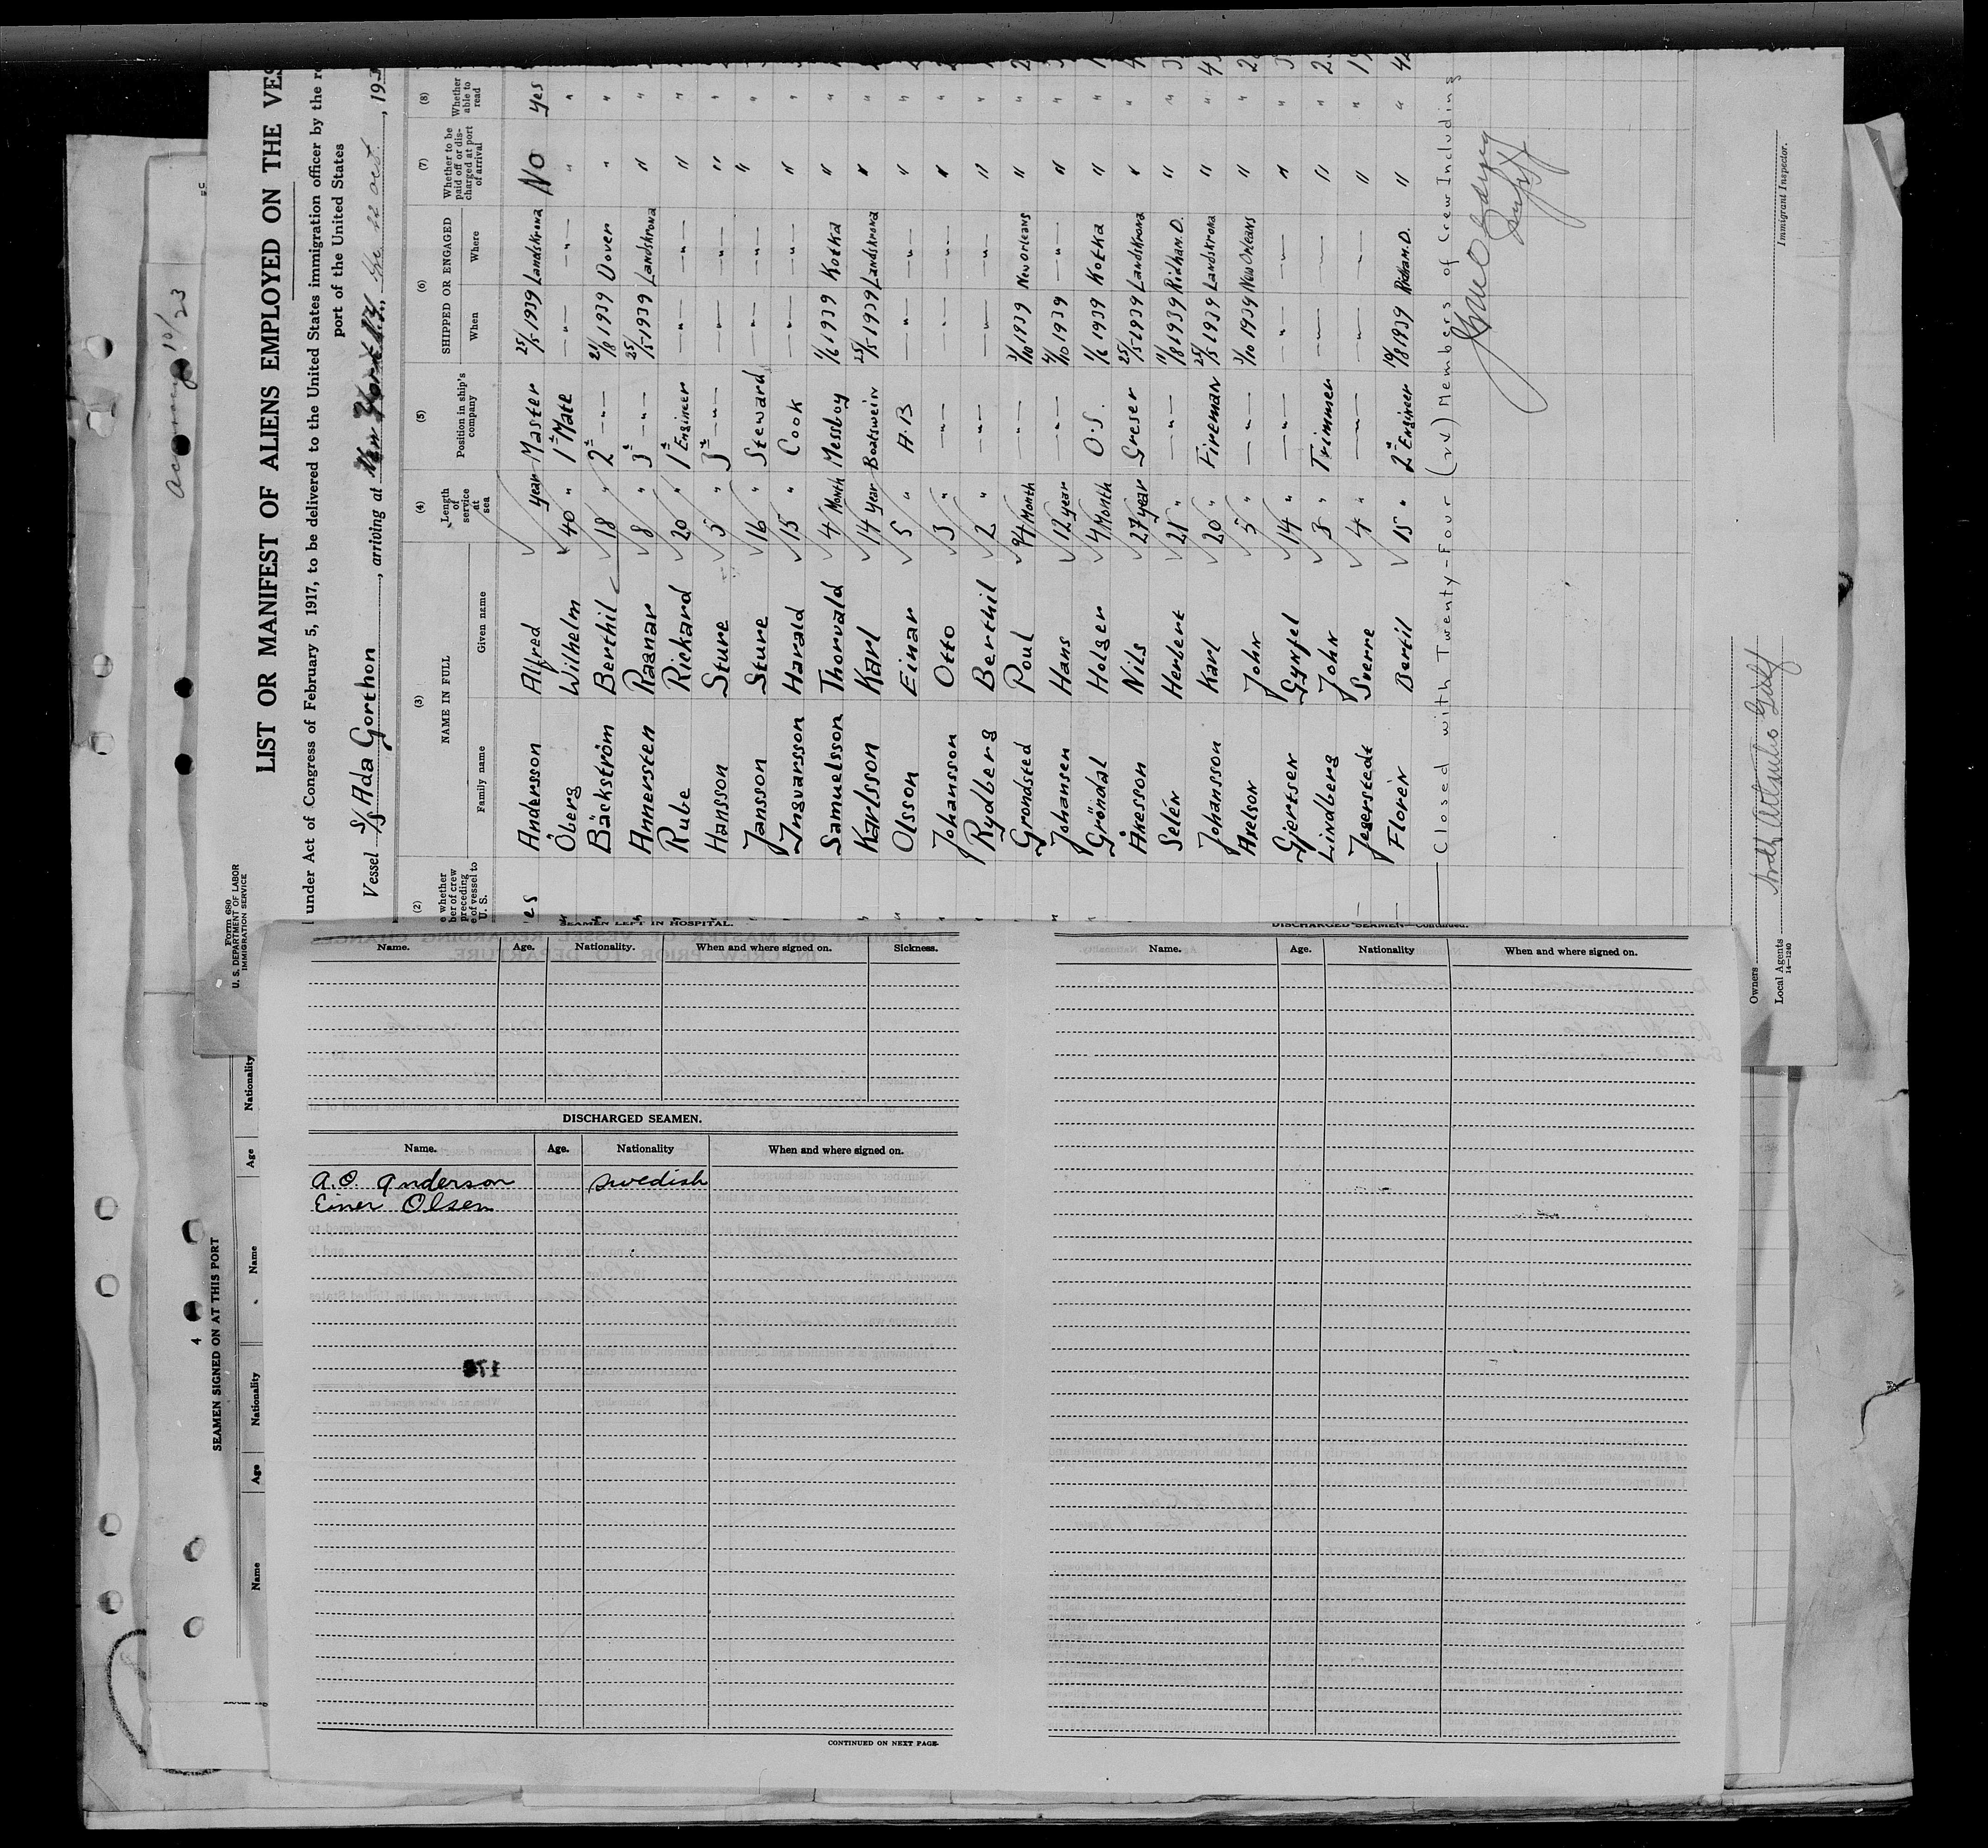 LIST OR MANIFEST OF ALIENS EMPLOYED ON THE VES
under Act of Congress of February 5, 1917, to be delivered to the United States immigration officer by the re
port of the United States
Vessel S/S Ada Gorthon, arriving at New York N.Y., 193
Form 680
U. S. DEPARTMENT OF LABOR
IMMIGRATION SERVICE
(2) (3) (4) (5) (6) (7) (8)
e whether ber of crew preceding e of vessel to U. S.
NAME IN FULL
Family name Given name
Length of service at sea
Position in ship's company
SHIPPED OR ENGAGED
When Where
Whether to be paid off or discharged at port of arrival
Whether able to read
es Andersson Alfred year Master 25/5 1939 Landskrona No Yes
Öberg Wilhelm 40 " 1st Mate —"— —"— " "
Bäckström Berthil 18 " 2 —"— 21/8 1939 Dover " "
Annersten Ragnar 8 " 3 —"— 25/5 1939 Landskrona " "
Rube Rickard 20 " 1 Engineer —"— —"— " "
Hansson Sture 5 " 3 —"— —"— —"— " "
Jansson Sture 16 " Steward —"— —"— " "
Ingvarsson Harald 15 " Cook —"— —"— " "
Samuelsson Thorvald 4 Month Messboy 1/6 1939 Kotka " "
Karlsson Karl 14 year Boatswein 25/5 1939 Landskrona " "
Olsson Einar 5 " A.B —"— —"— " "
Johansson Otto 3 " —"— —"— —"— " "
Rydberg Berthil 2 " —"— —"— —"— " "
Grondsted Poul 94 Month —"— 3/10 1939 New Orleans " "
Johansen Hans 12 year —"— 4/10 1939 —"— " "
Gröndal Holger 4 Month O.S. 1/6 1939 Kotka " "
Åkesson Nils 27 year Greser 25/5 1939 Landskrona " "
Selén Herbert 21 " —"— 11/8 1939 Ridham.D. " "
Johansson Karl 20 " Fireman 25/5 1939 Landskrona " "
Axelson John 5 " —"— 3/10 1939 New Orleans " "
Gjertsen Gynfel 14 " —"— —"— —"— " "
Lindberg John 3 " Trimmer —"— —"— " "
Jegerstedt Sverre 4 " —"— —"— —"— " "
Florén Bertil 15 " 2 Engineer 10/8 1939 Ridham.D. " "
Closed with Twenty-Four (24) Members of Crew Including
Immigrant Inspector.
Owners
Local Agents
14—1240
10/23
SEAMEN LEFT IN HOSPITAL.
Name. Age. Nationality. When and where signed on. Sickness.
DISCHARGED SEAMEN.
Name. Age. Nationality When and where signed on.
A.O. Anderson Swedish
Einer Olsen
CONTINUED ON NEXT PAGE.
DISCHARGED SEAMEN—Continued.
Name. Age. Nationality When and where signed on.
4
SEAMEN SIGNED ON AT THIS PORT
Name Age Nationality Name Age Nationality